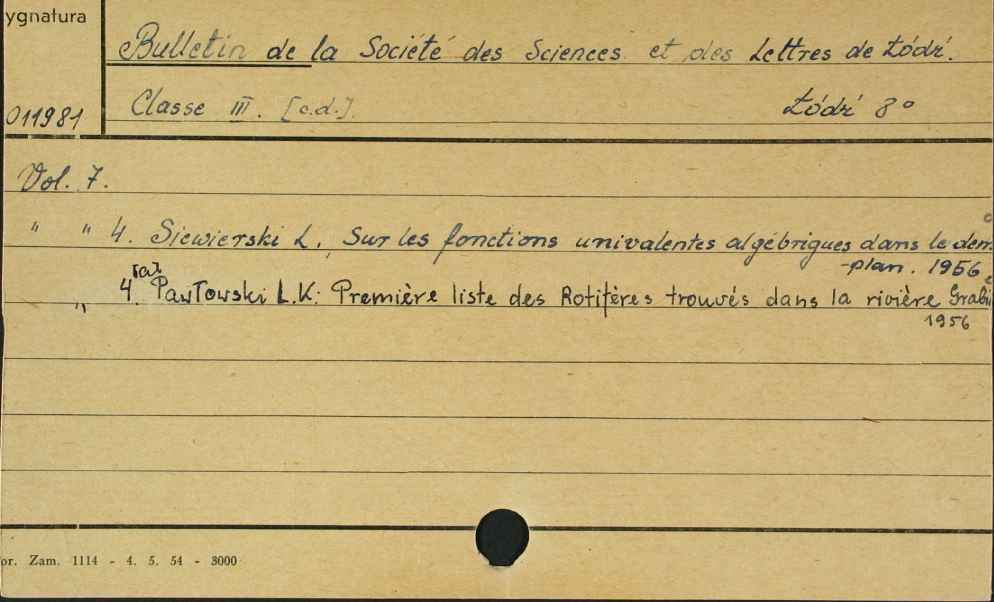 ygnatura
Bulletin de la Société des Sciences et des Lettres de Łódź.
011981
Classe III. [c.d.]. Łódź 8°
Vol. 7.
" " 4. Siewierski L., Sur les fonctions univalentes algébriques dans le dem
-plan. 1956
" 4.[a] Pawłowski L.K: Première liste des Rotifères trouvés dans la rivière Grabi
1956
or. Zam. 1114 - 4. 5. 54 - 3000